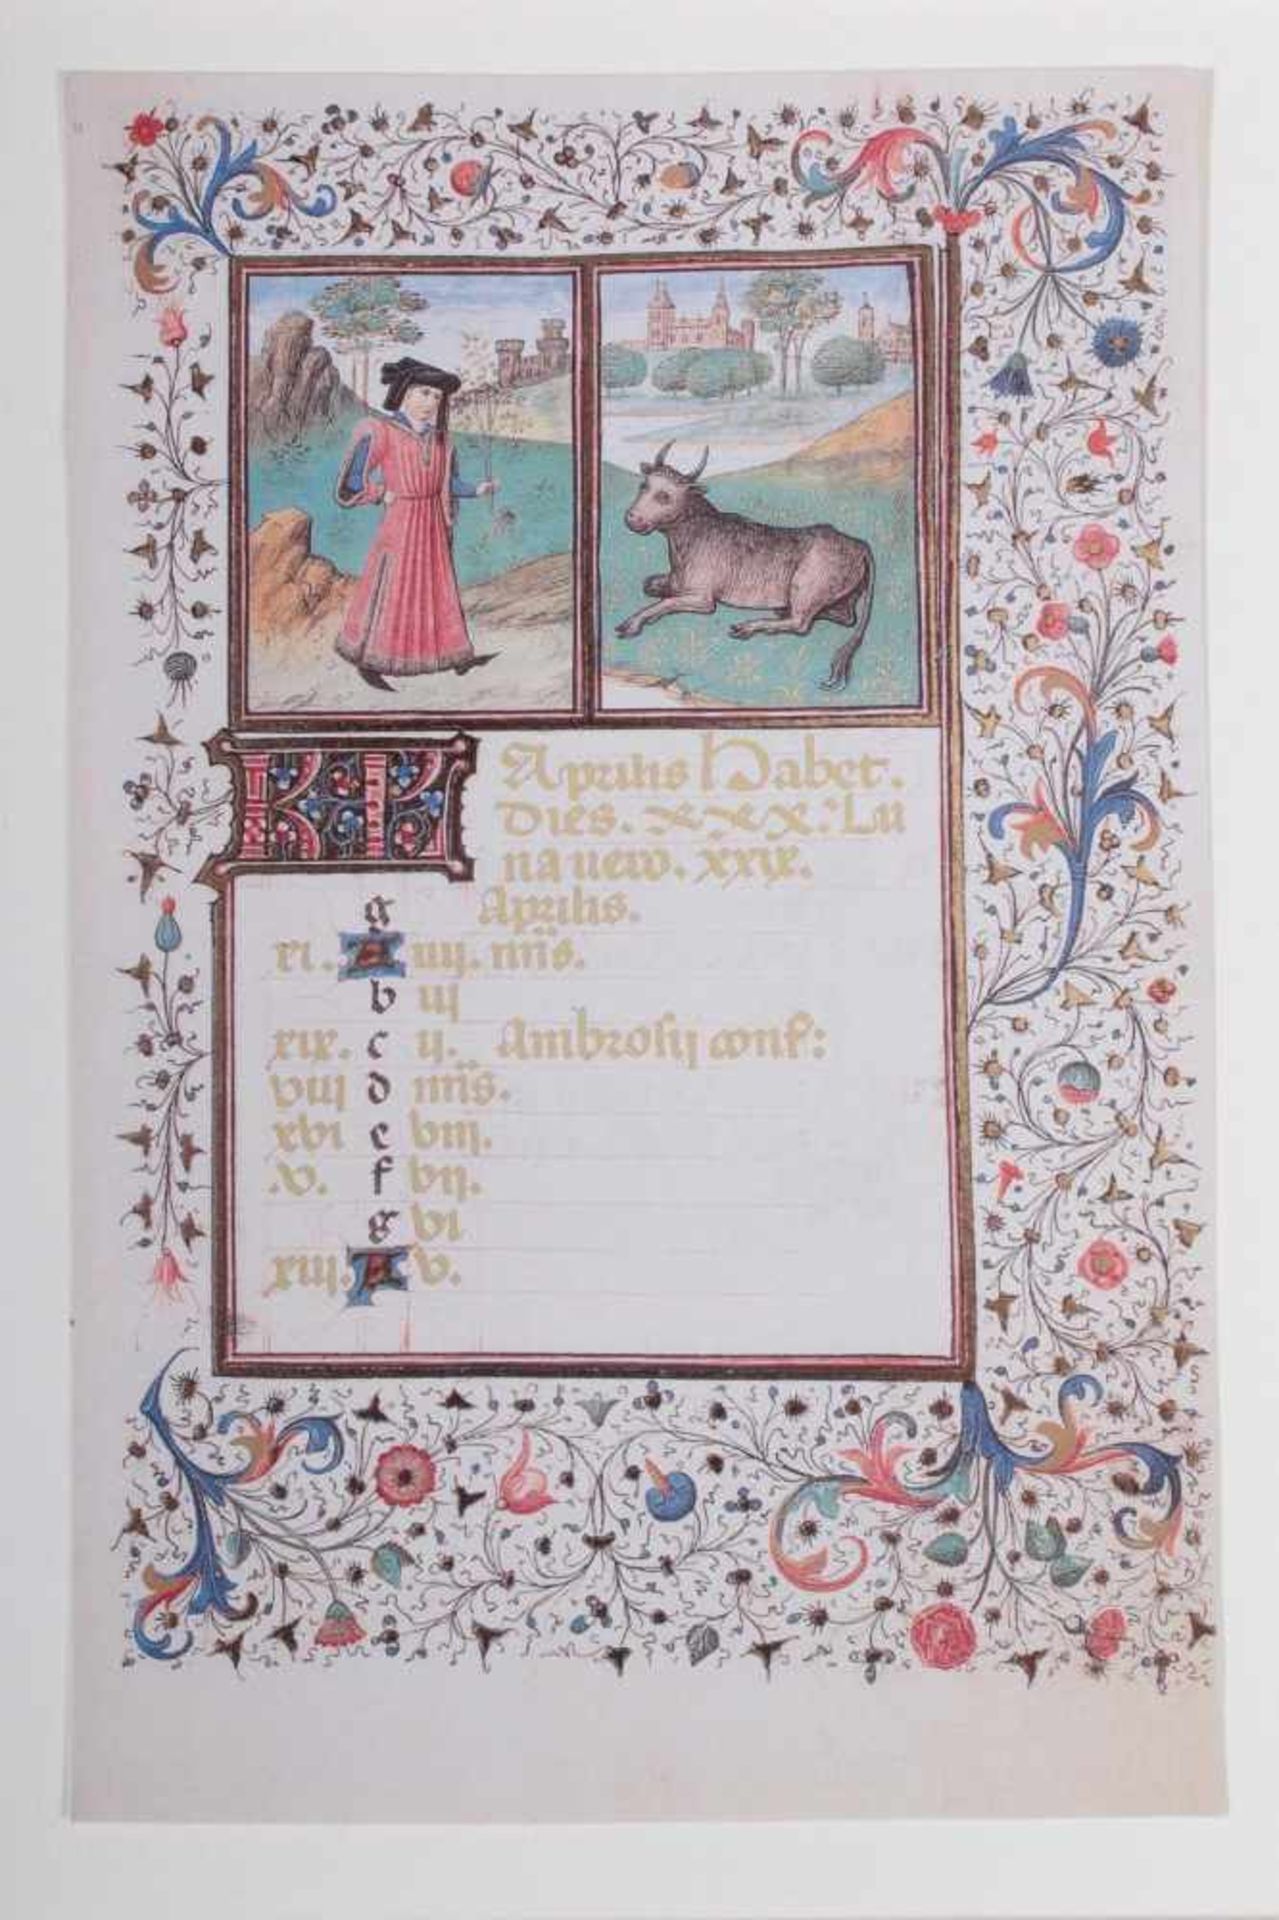 KL Aprilis habet.
dies. xxx. Lu
na uero. xxix.
g Aprilis.
xi. A iiij. n̄is.
b iij
xix. c ij. Ambrosij conf:
viij d n̄is.
xvi e viij.
.v. f vij.
g vi
xiij. A v.